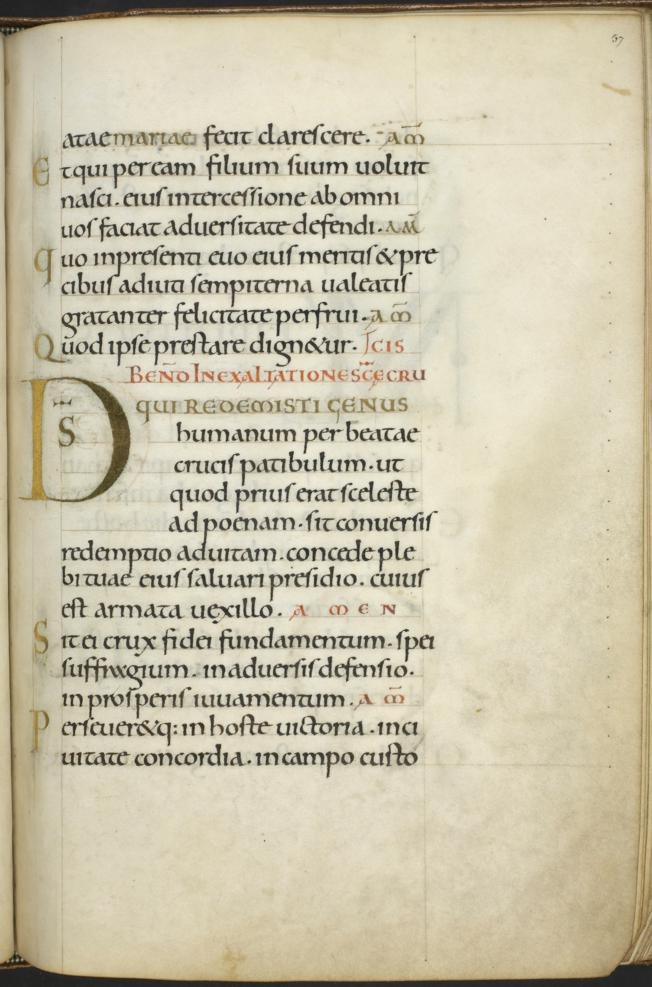 37
atae mariae fecit clarescere. am̄
Et qui per eam filium suum uoluit
nasci. eius intercessione ab omni
uos faciat aduersitate defendi. am̄
quo inpresenti euo eius meritis & pre
cibus adiuti sempiterna ualeatis
gratanter felicitate perfrui. am̄
Quod ipse prestare dign&ur. scis
BEN̄D IN EXALTATIONE SC̄E CRU
D̄S QUI REDEMISTI GENUS
humanum per beatae
crucis patibulum. ut
quod prius erat sceleste
ad poenam. sit conuersis
redemptio ad uitam. concede ple
bi tuae eius saluari presidio. cuius
est armata uexillo. AMEN
Sit ei crux fidei fundamentum. spei
suffragium. in aduersis defensio.
in prosperis iuuamentum. am̄
Perseuer&q: in hoste uictoria. in ci
uitate concordia. in campo custo